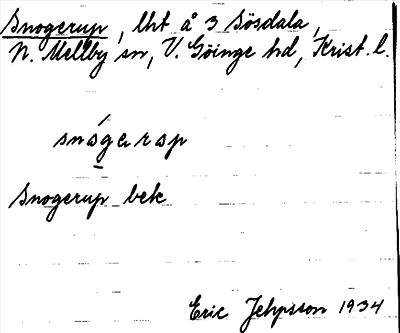 Snogerup, lht å 3 Sösdala,
N. Mellby sn, V. Göinge hd, Krist. l.
snógarap
Snogerup bek
Eric Jehpsson 1934